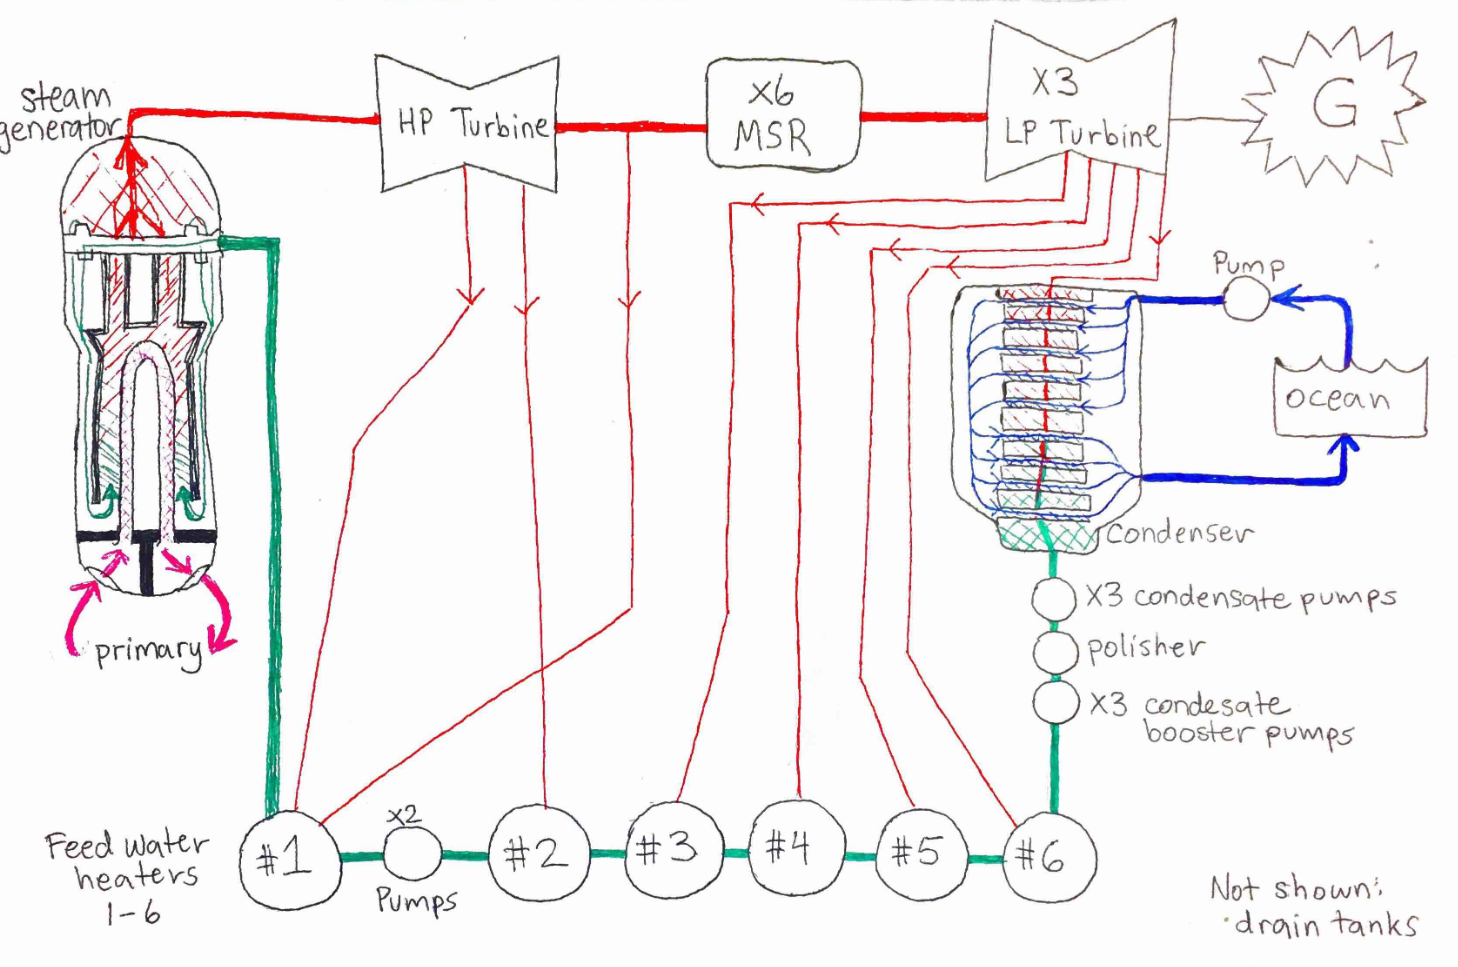 steam
generator
HP Turbine
X6
MSR
X3
LP Turbine
G
Pump
ocean
Condenser
X3 condensate pumps
polisher
X3 condesate
booster pumps
primary
Feed water
heaters
1-6
#1
X2
Pumps
#2
#3
#4
#5
#6
Not shown:
drain tanks